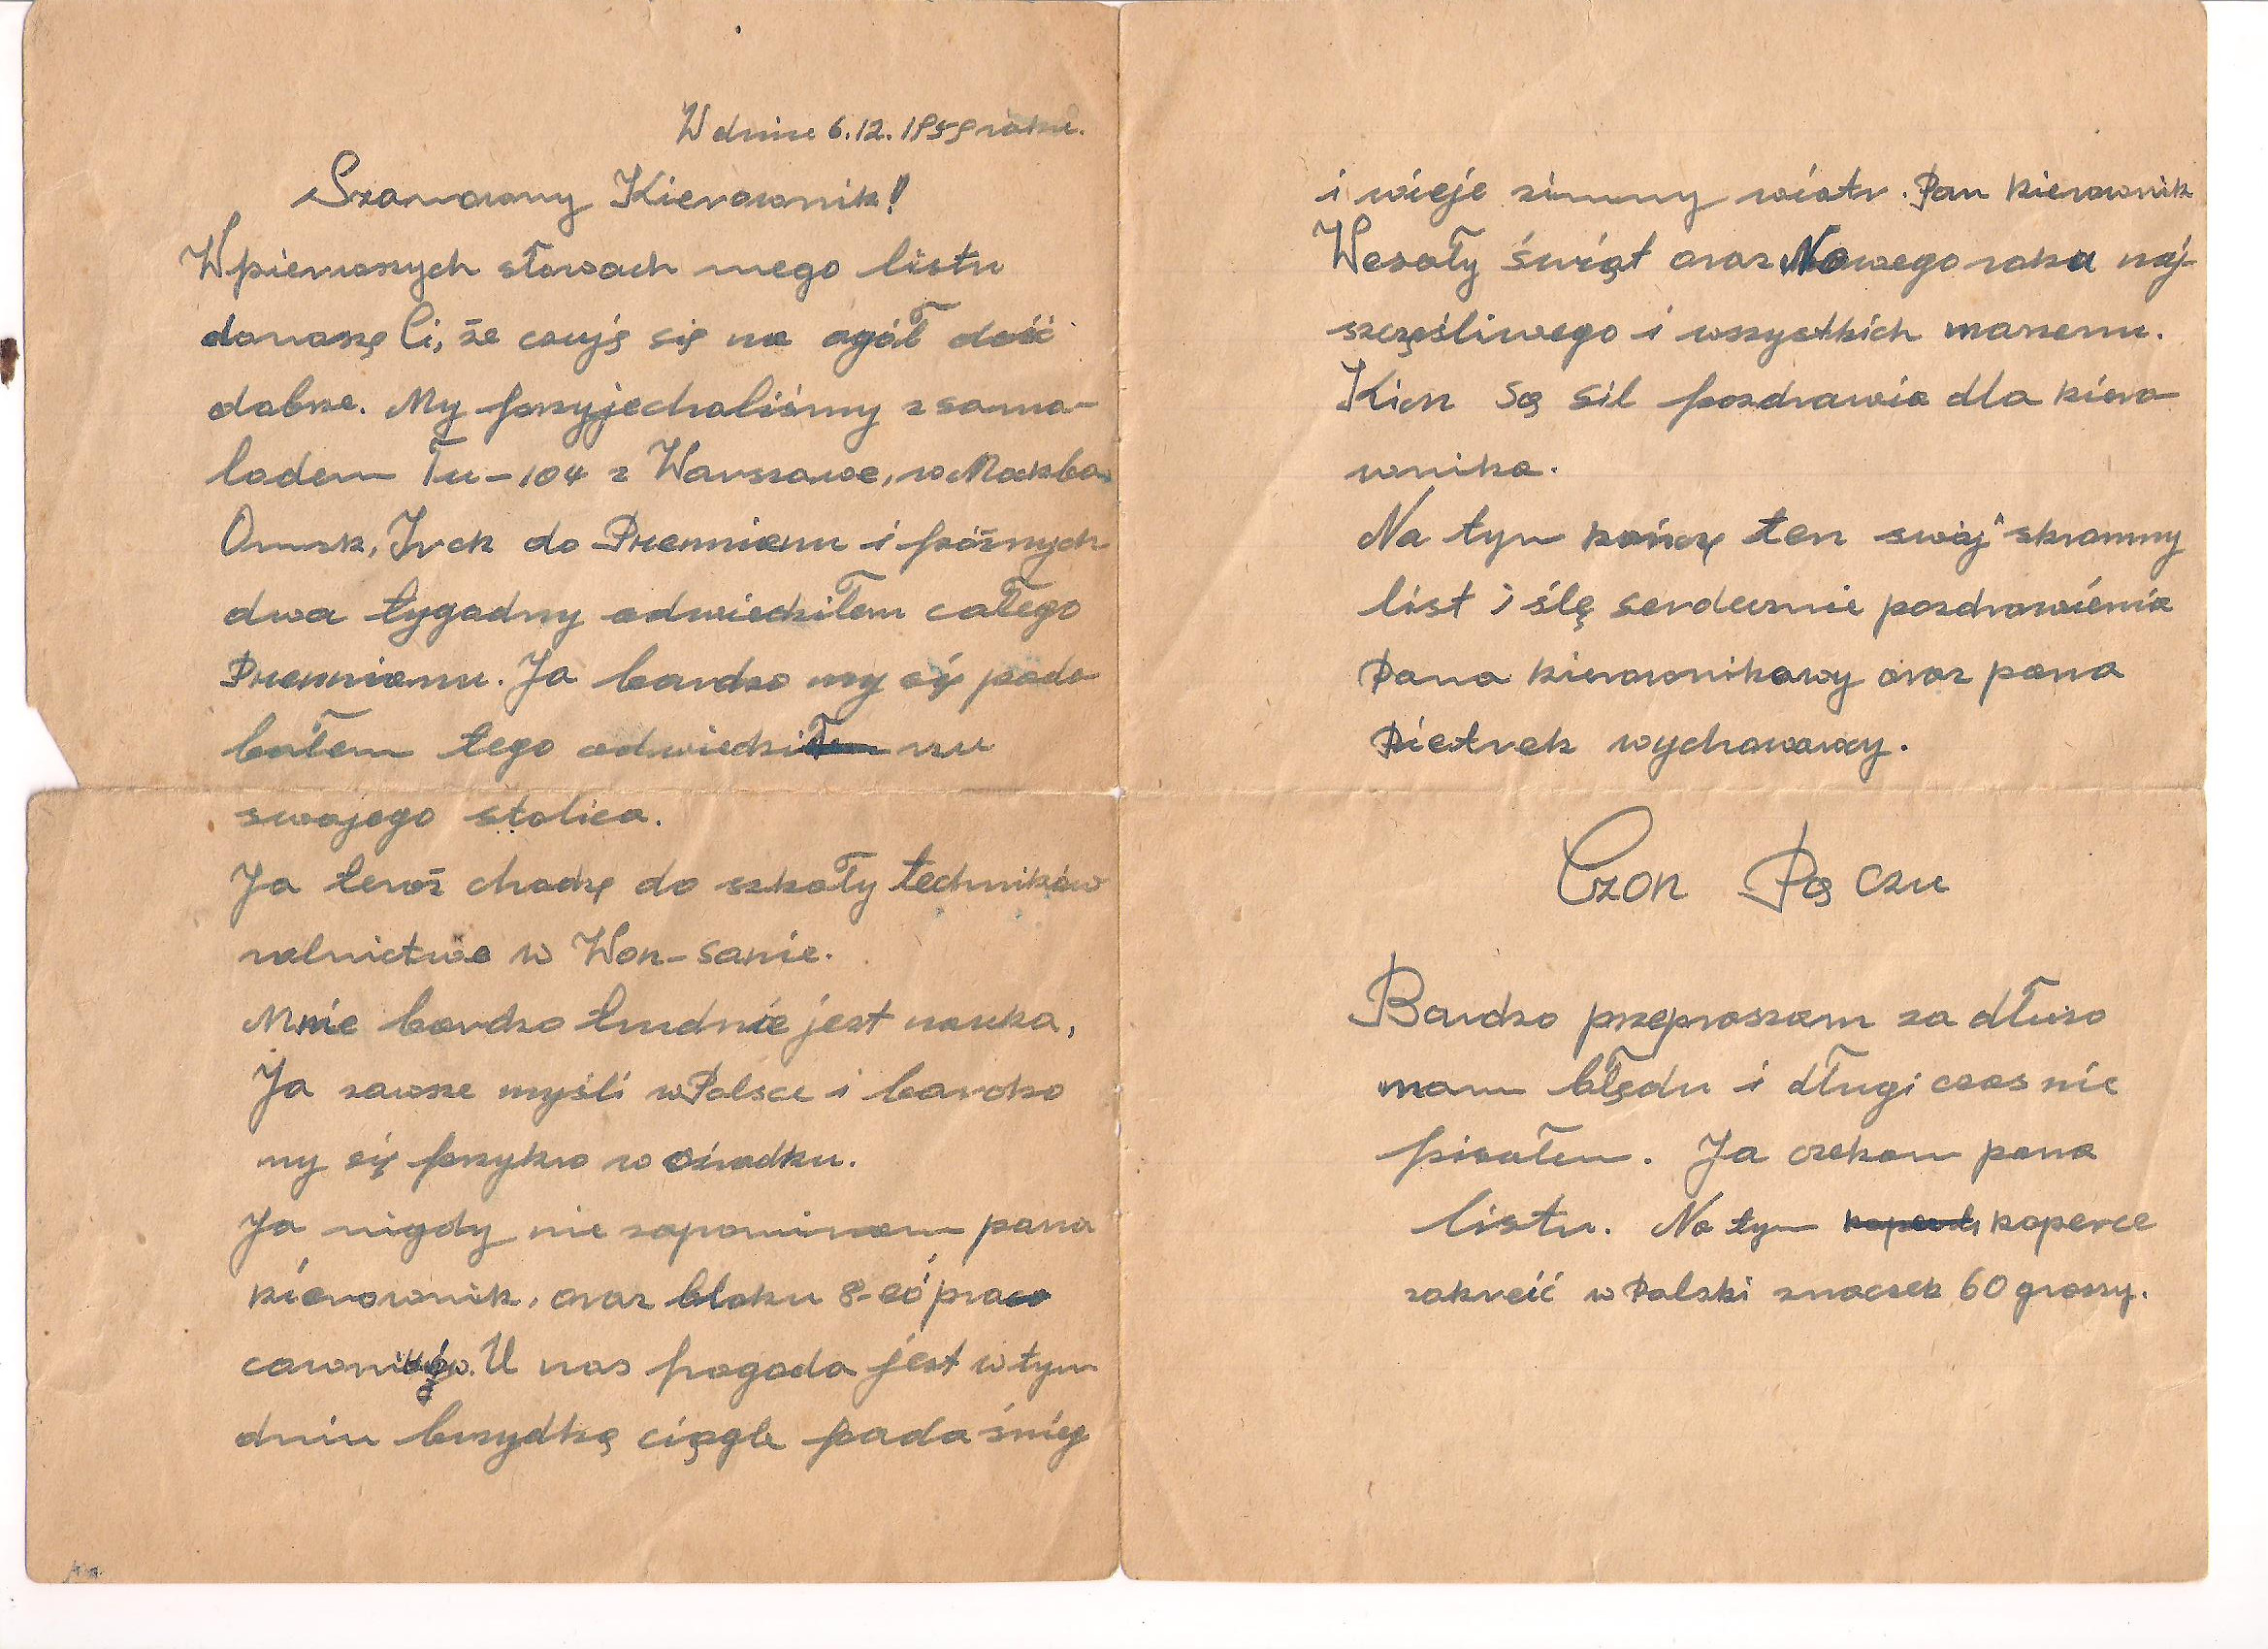 W dniu 6.12.1959 roku.
Szanowny Kierownik!
W pierwszych słowach mego listu
donoszę Ci, że czuję się na ogół dość
dobrze. My przyjechaliśmy z samo-
lodem Tu-104 z Warszawe, w Mockba
Omsk, Irck do Phennianu i późnych
dwa tygodny odwiedziłem całego
Phennianu. Ja bardzo my się podo
bałem tego odwiedzi nu
swojego stolica.
Ja teroż chodzę do szkoły techników
rolnictwie w Won-sanie.
Mnie bardzo trudnie jest nauka,
Ja zawsze myśli w Polsce i bardzo
my się przykro w ośrodku.
Ja nigdy nie zapominam pana
kierownik, oraz bloku 8-eó praco
cowników. U nas pogoda jest w tym
dniu brzydką ciągle pada śnieg
i wieje zimny wiatr. Pan kierownik
Wesoły świąt oraz Nowego roku naj-
szczęśliwego i wszystkich marzenu.
Kion Są Sil pozdrawia dla kiero
wnika.
Na tym kończę ten swój skromny
list i ślę serdecznie pozdrowienia
Pana kierownikowy oraz pana
Pietrek wychowawcy.
Czon Pą Czu
Bardzo przepraszam za dłuzo
mam błędu i długi czas nie
pisałem. Ja czekam pana
listu. Na tym koperce
zakreić w Polski znaczek 60 groszy.